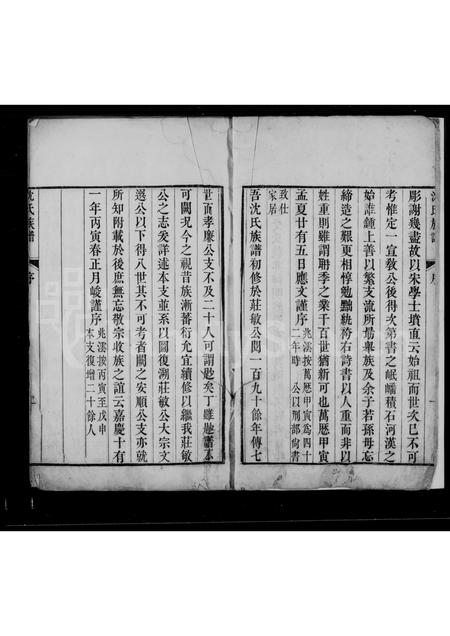 彫謝幾盡故以朱學士填直云始祖而世次已不可
考惟定一宣敎公後得次第書之岷嶓積石河漢之
始誰鍾上善以繁支流所朂舉族及余子若孫毋忘
締造之艱更相惇勉黜紈袴右詩書以人重而非以
姓重則雖謂聃季之業千百世猶新可也萬厯甲寅
孟夏廿有五日應文謹序 兆澐按萬厯甲寅爲四十
二年時 公以刑部尙書
致仕
家居
吾沈氏族譜初修於莊敏公閱一百九十餘年傳七
世而孝廉公支不及二十人可謂尠矣丁雖尠譜不
可闕况今之視昔族漸蕃衍尤宜續修以繼我莊敏
公之志爰詳述本支並系以圖復溯莊敏公大宗文
選公以下得八世其不可考者闕之安順公支亦就
所知附載於後庶無忘敬宗收族之誼云嘉慶十有
一年丙寅春正月峻謹序 兆澐按丙寅至戊申
本支復增二十餘人
沈氏族譜
序